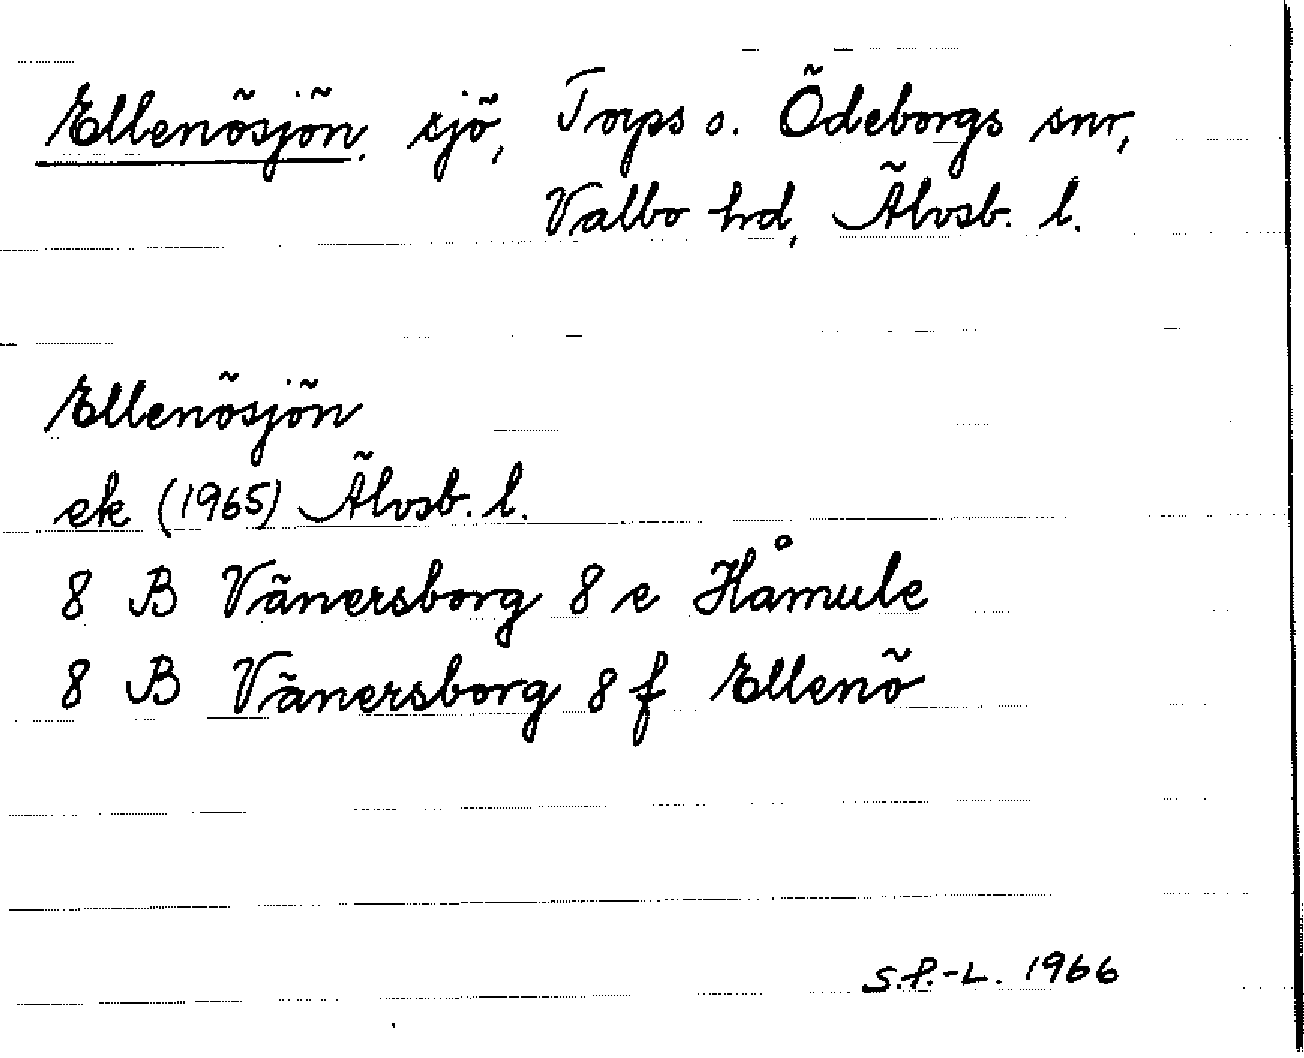 Ellenösjön, sjö, Torps o. Ödeborgs snr,
Valbo hd, Älvsb. l.
Ellenösjön
ek (1965) Älvsb. l.
8 B Vänersborg 8 e Håmule
8 B Vänersborg 8 f Ellenö
S.P.-L. 1966